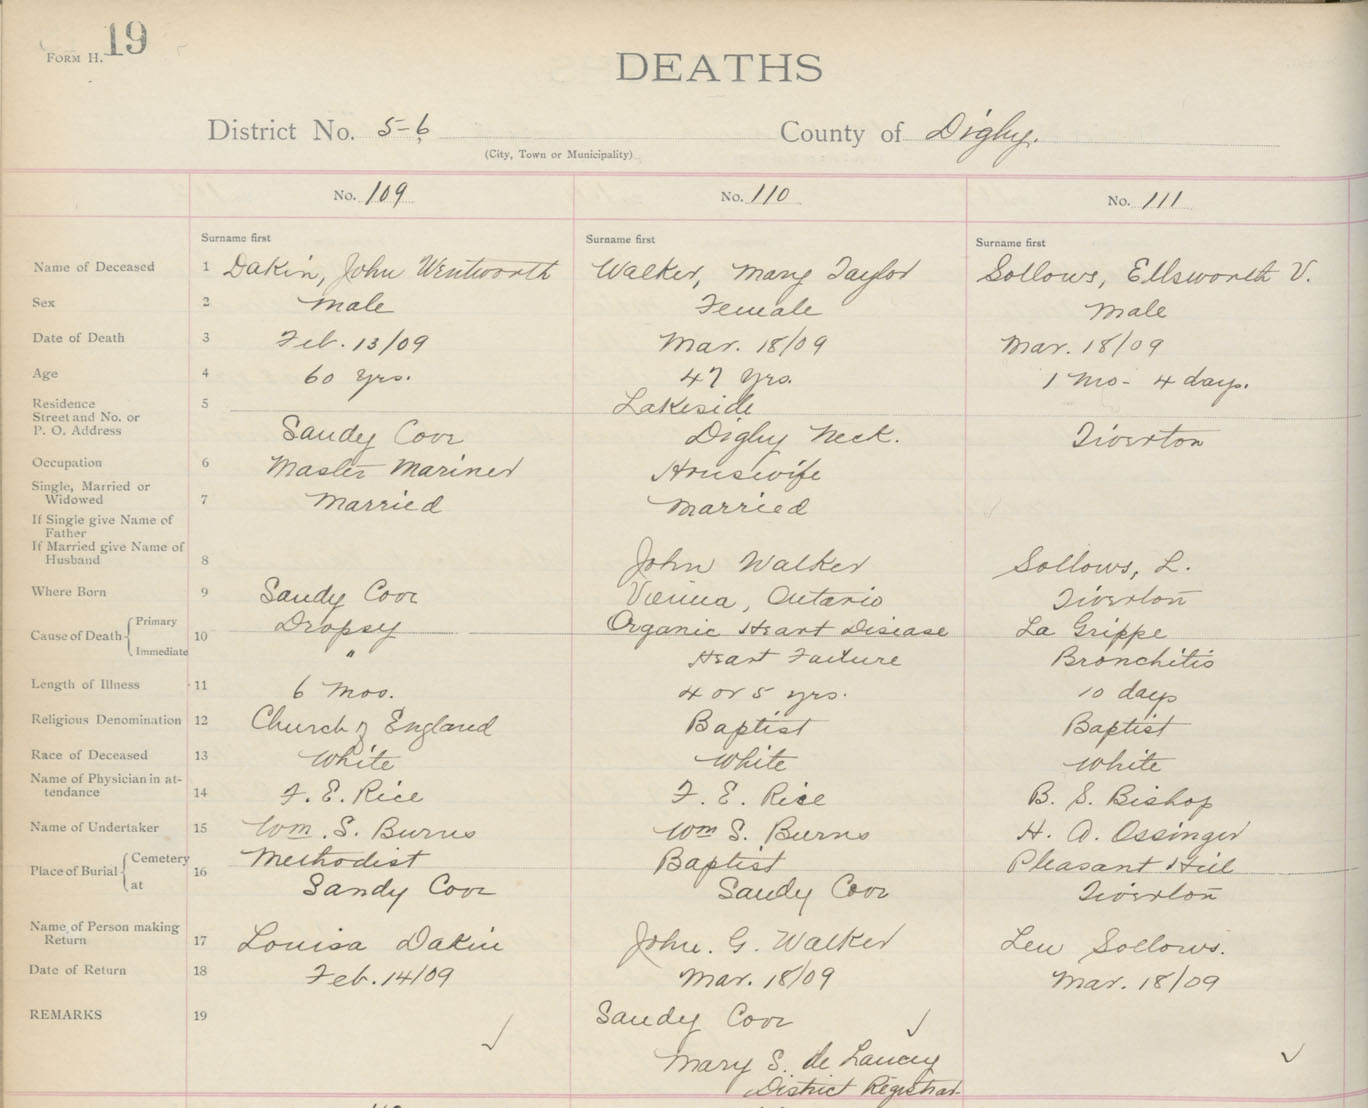 19
FORM H.
DEATHS
District No. 5-6 County of Digby.
(City, Town or Municipality)
No. 109 No. 110 No. 111
Surname first Surname first Surname first
Name of Deceased 1 Dakin, John Wentworth Walker, Mary Taylor Sollows, Ellsworth V.
Sex 2 Male Female Male
Date of Death 3 Feb. 13/09 Mar. 18/09 Mar. 18/09
Age 4 60 yrs. 47 yrs. 1 Mo- 4 days.
Residence 5 Lakeside
Street and No. or
P. O. Address Sandy Cove Digby Neck. Tiverton
Occupation 6 Master Mariner Housewife
Single, Married or
Widowed 7 Married Married
If Single give Name of
Father
If Married give Name of
Husband 8 John Walker Sollows, L.
Where Born 9 Sandy Cove Vienna, Ontario Tiverton
Cause of Death Primary 10 Dropsy Organic Heart Disease La Grippe
Immediate " Heart Failure Bronchitis
Length of Illness 11 6 mos. 4 or 5 yrs. 10 days
Religious Denomination 12 Church of England Baptist Baptist
Race of Deceased 13 White White White
Name of Physician in at-
tendance 14 F. E. Rice F. E. Rice B. S. Bishop
Name of Undertaker 15 Wm. S. Burns Wm S. Burns H. A. Ossinger
Place of Burial Cemetery 16 Methodist Baptist Pleasant Hill
at Sandy Cove Sandy Cove Tiverton
Name of Person making
Return 17 Louisa Dakin John. G. Walker Len Sollows.
Date of Return 18 Feb. 14/09 Mar. 18/09 Mar. 18/09
REMARKS 19 Sandy Cove
Mary S. de Lancey
District Registrar